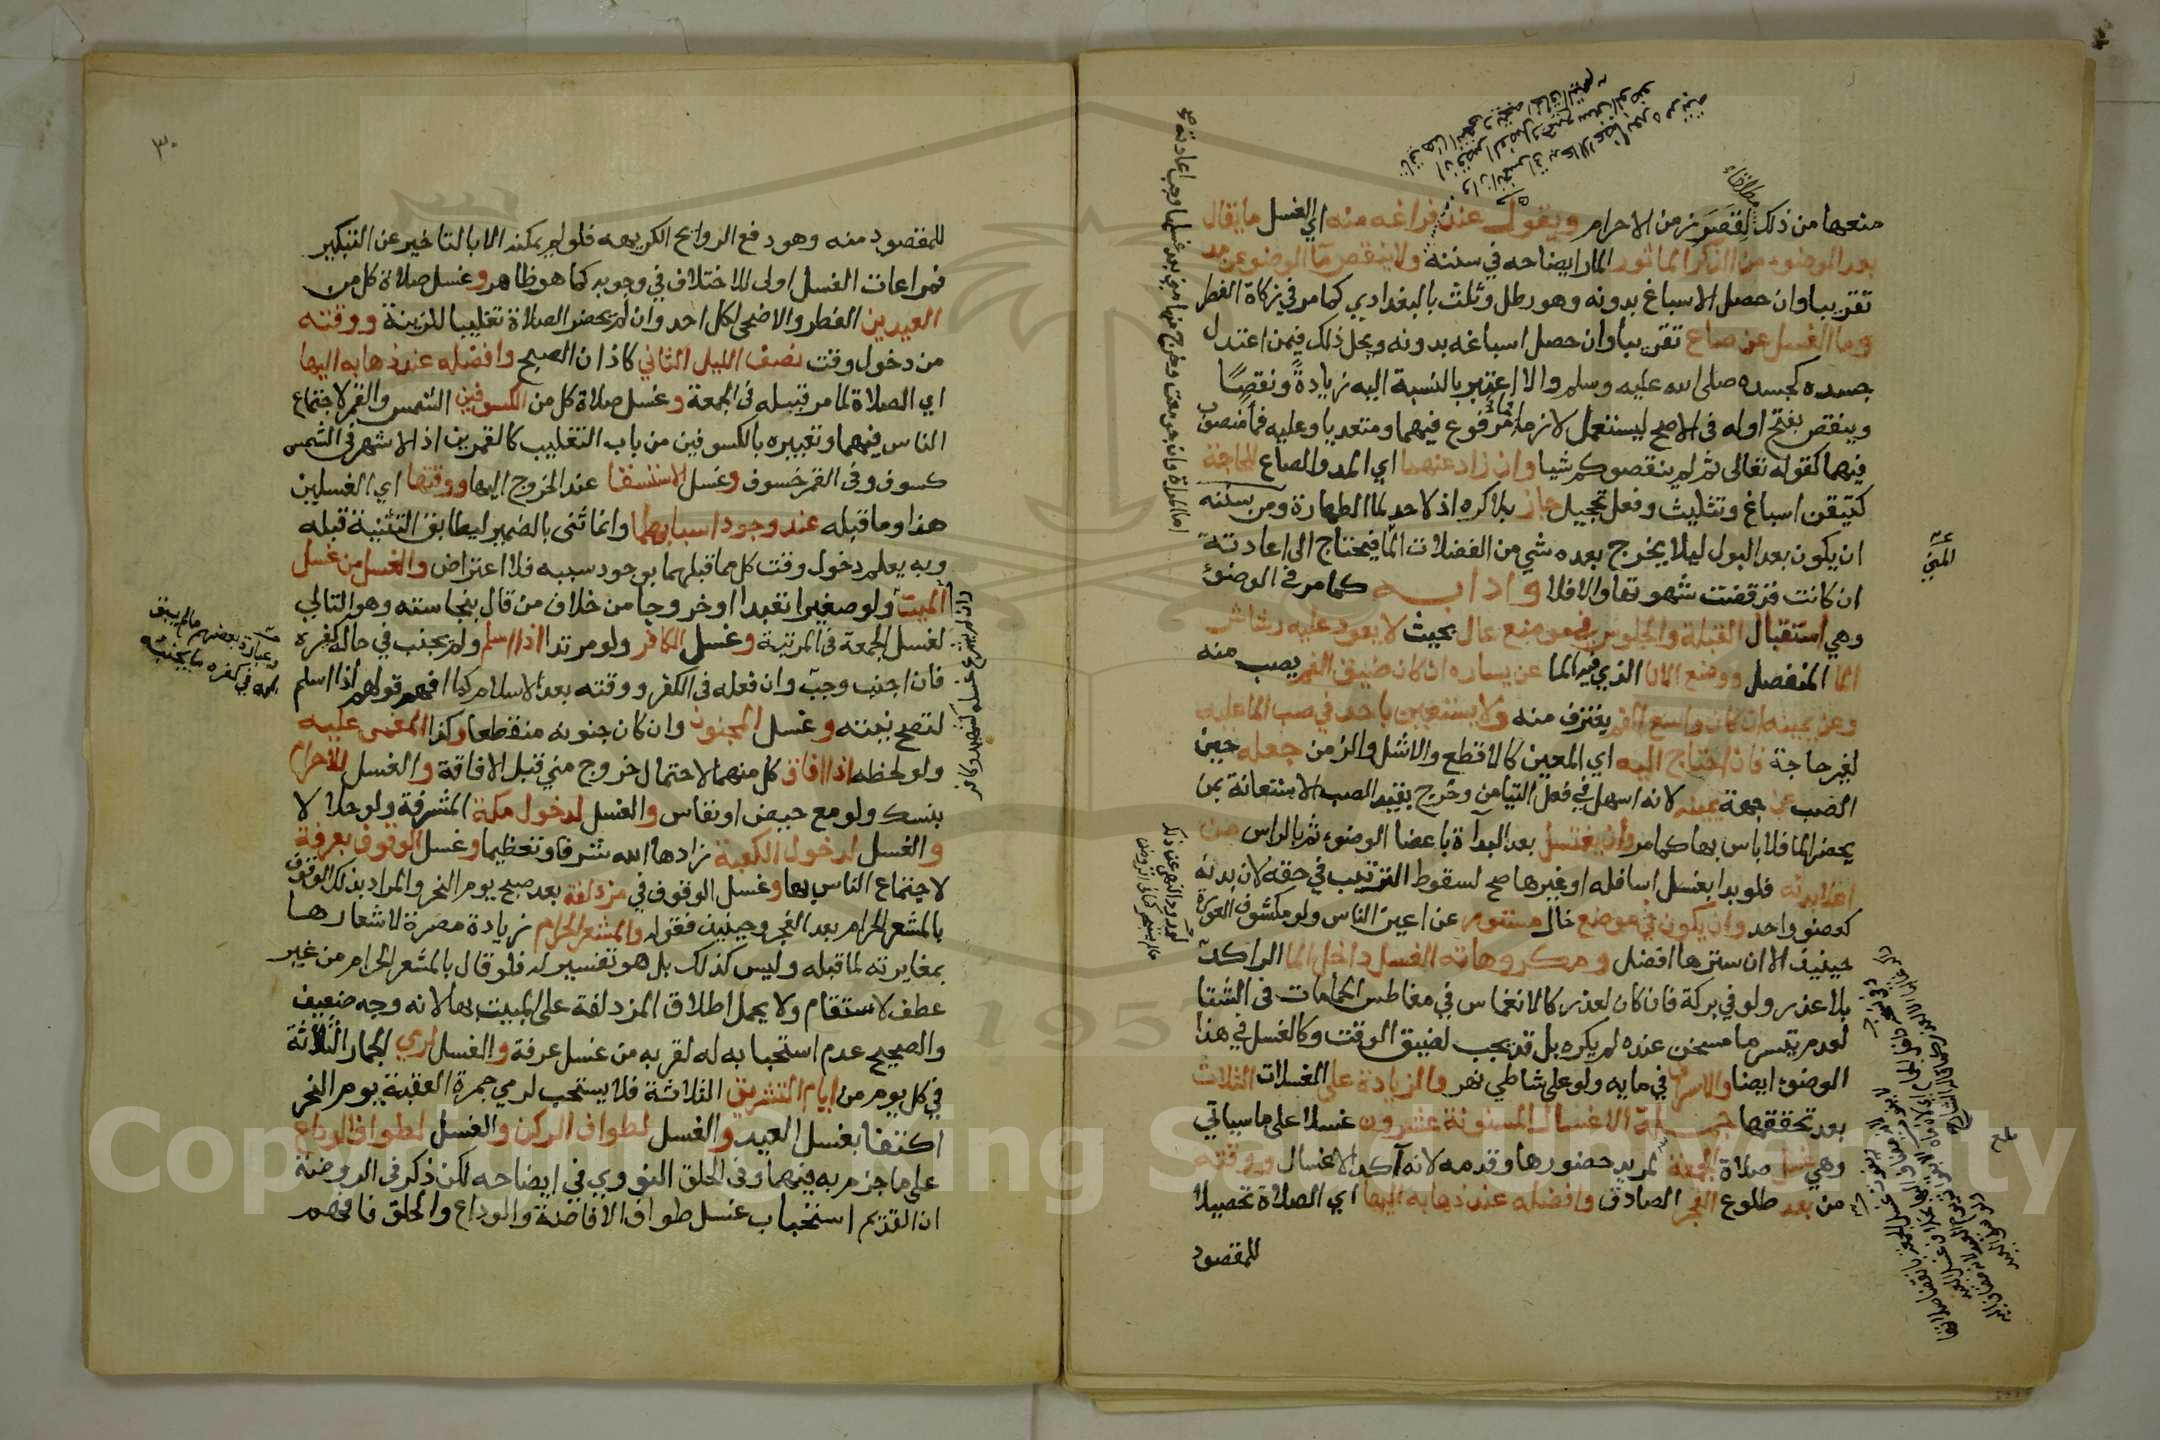 منعها من ذلك لقصر زمن الاحرام ويقول عند فراغه منه اي الغسل ما يقال
بعد الوضوء من الذكر الماثور المار ايضاحه في سننه ولا ينقص ما الوضوء عن مد
تقريبا وان حصل الاسباغ بدونه وهو رطل وثلث بالبغدادي كما مر في زكاة الفطر
وما الغسل عن صاع تقريبا وان حصل اسباغه بدونه ومحل ذلك فيمن اعتدل
جسده كجسده صلى الله عليه وسلم والا اعتبر بالنسبة اليه زيادةً ونقصًا
وينقص بفتح اوله في الاصح ليستعمل لازما فما مرفوع فيهما ومتعديا وعليه فما منصوب
فيهما كقوله تعالى ثم لم ينقصوكم شيا وان زاد عنهما اي المد والصاع لحاجة
كتيقن اسباغ وتثليث وفعل تحجيل جاز بلا كره اذ لا حد لما الطهارة ومن سننه
ان يكون بعد البول ليلا يخرج بعده شي من الفضلات الما فيحتاج الى اعادته
ان كانت قد قضت شهوتها والا فلا وادابه كما مر في الوضوء
وهي استقبال القبلة والجلوس في موضع عال بحيث لا يعود عليه رشاش
الما المنفصل ووضع الانا الذي فيه الما عن يساره ان كان ضيق الفم يصب منه
وعن يمينه ان كان واسع الفم يغترف منه ولا يستعين باحد في صب الما عليه
لغير حاجة فان احتاج اليه اي المعين كالاقطع والاشل والزمن جعله حين
الصب عن جهة يمينه لانه اسهل في فعل التيامن وخرج بقيد الصب الاستعانة بمن
يحضر الما فلا باس بها كما مر وان يغتسل بعد البداة باعضا الوضوء ثم بالراس من
اعلا بدنه فلو بدا بغسل اسافله او غيرها صح لسقوط الترتيب في حقه لان بدنه
كعضو واحد وان يكون في موضع خال مستور عن اعين الناس ولو مكشوف العورة
حينيذ الا ان سترها افضل ومكروهاته الغسل داخل الما الراكد
بلا عذر ولو في بركة فان كان لعذر كالانغماس في مغاطس الحمامات في الشتا
لعدم تيسر ما مسخن عنده لم يكره بل قد يجب لضيق الوقت وكالغسل في هذا
الوضوء ايضا والاسراف في مايه ولو على شاطي نهر والزيادة على الغسلات الثلاث
بعد تحققها جملة الاغسال المسنونة عشرون غسلا على ما سياتي
وهي غسل صلاة الجمعة لمريد حضورها وقدمه لانه آكد الاغسال ووقته
من بعد طلوع الفجر الصادق وافضله عند ذهابه اليها اي الصلاة تحصيلا
للمقصود
اما المراة فان جومعت وخرج منها مني بعد غسلها وجب اعادته
المني
٣٠
للمقصود منه وهو دفع الروايح الكريهه فلو لم يمكنه الا بالتاخير عن التبكير
فمراعات الغسل اولى للاختلاف في وجوبه كما هو ظاهر وغسل صلاة كل من
العيدين الفطر والاضحى لكل احد وان لم يحضر الصلاة تغليبا للزينة ووقته
من دخول وقت نصف الليل الثاني كاذان الصبح وافضله عند ذهابه اليها
اي الصلاة لما مر قبيله في الجمعة وغسل صلاة كل من الكسوفين الشمس والقمر لاجتماع
الناس فيهما وتعبيره بالكسوفين من باب التغليب كالقمرين اذ الاشهر في الشمس
كسوف وفي القمر خسوف وغسل الاستسقا عند الخروج اليها ووقتها اي الغسلين
هذا وما قبله عند وجود اسبابهما وانما ثنى بالضمير ليطابق التثنية قبله
وبه يعلم دخول وقت كل مما قبلهما بوجود سببه فلا اعتراض والغسل من غسل
الميت ولو صغيرا تعبدا او خروجا من خلاف من قال بنجاسته وهو التالي
لغسل الجمعة في المرتبة وغسل الكافر ولو مرتدا اذا اسلم ولم يجنب في حال كفره
فان اجنب وجب وان فعله في الكفر ووقته بعد الاسلام كما افهم قولهم اذا اسلم
لتصح نيته وغسل المجنون وان كان جنونه منقطعا وكذا المغمى عليه
ولو لحظه اذا افاق كل منهما لاحتمال خروج مني قبل الافاقة والغسل للاحرام
بنسك ولو مع حيض او نفاس والغسل لدخول مكة المشرفة ولو حلالا
والغسل لدخول الكعبة زادها الله شرفا وتعظيما وغسل الوقوف بعرفة
لاجتماع الناس بها وغسل الوقوف في مزدلفة بعد صبح يوم النحر والمراد بذلك الوقوف
بالمشعر الحرام بعد الفجر وحينيذ فقوله والمشعر الحرام زيادة مضرة لاشعارها
بمغايرته لما قبله وليس كذلك بل هو تفسير له فلو قال بالمشعر الحرام من غير
عطف لاستقام ولا يحمل اطلاق المزدلفة على المبيت بها لانه وجه ضعيف
والصحيح عدم استحبابه له لقربه من غسل عرفة والغسل لرمي الجمار الثلاثة
في كل يوم من ايام التشريق الثلاثة فلا يستحب لرمي جمرة العقبة يوم النحر
اكتفا بغسل العيد والغسل لطواف الركن والغسل لطواف الوداع
على ما جزم به فيهما وفي الحلق النووي في ايضاحه لكن ذكر في الروضة
ان القديم استحباب غسل طواف الافاضة والوداع والحلق فافهم
Copyright © King Saud University
195